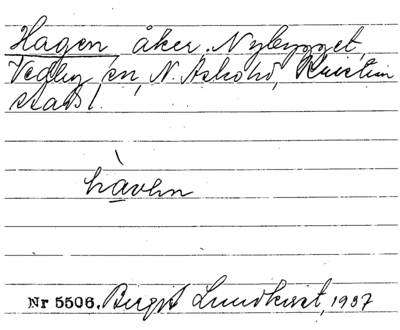 Hagen åker. Nybygget,
Vedby sn, N. Åsbohd, Kristian
stads l.
hàvhn
Nr 5506. Birgit Lundkvist, 1937